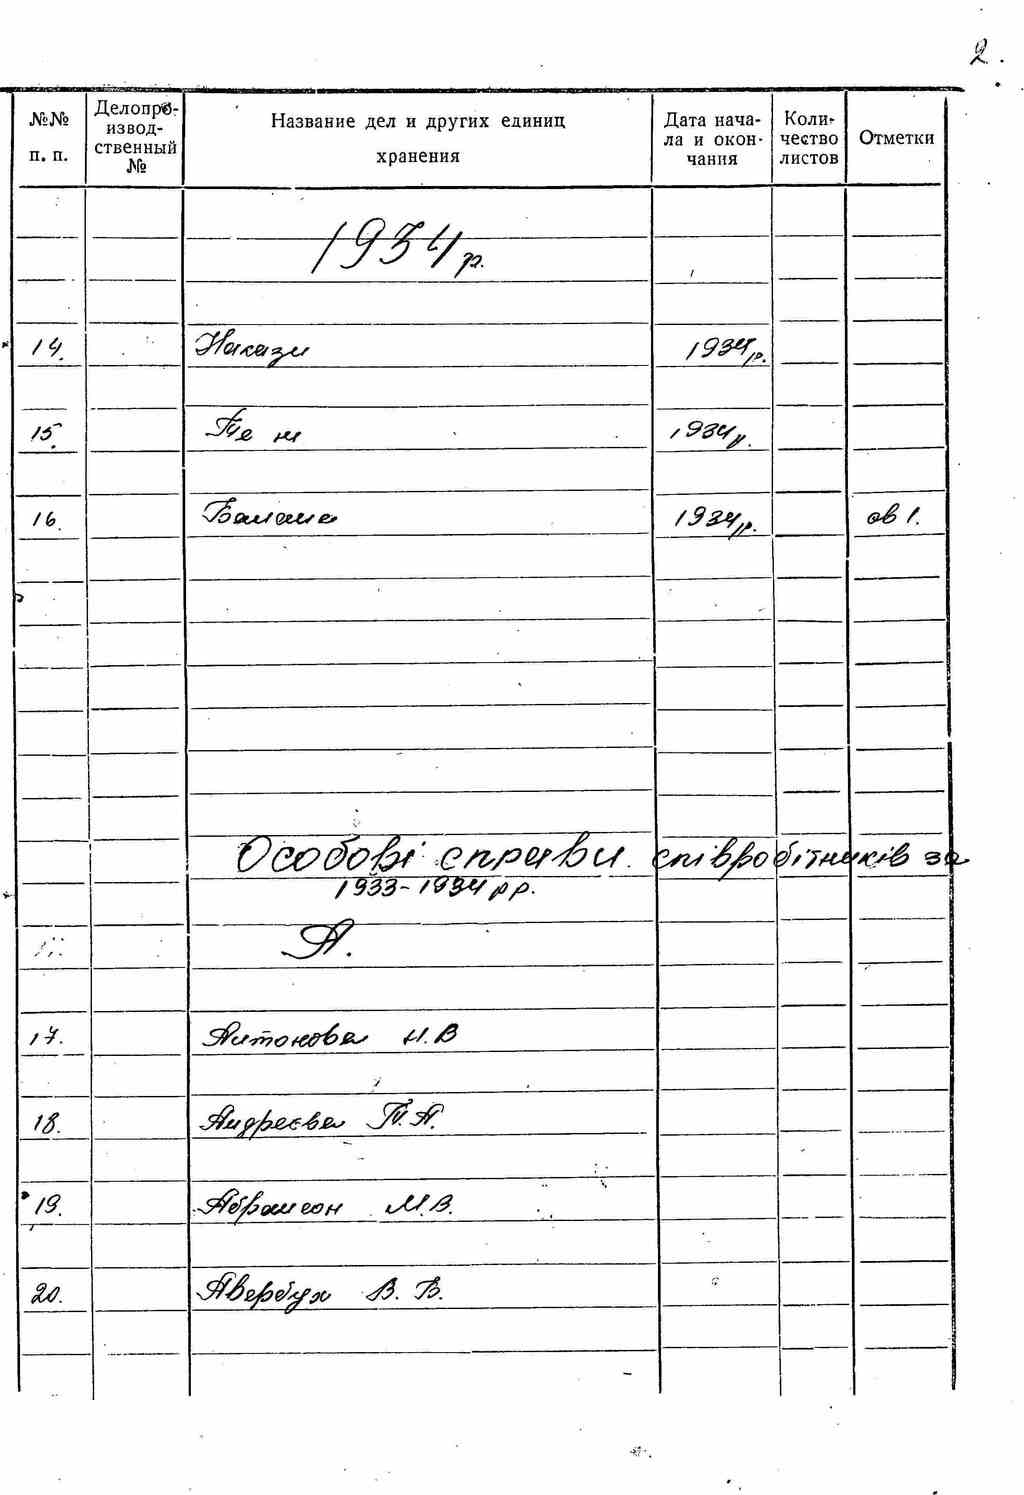 2.
№№ п. п.
Делопро-
извод-
ственный
№
Название дел и других единиц
хранения
Дата нача-
ла и окон-
чания
Коли-
чество
листов
Отметки
1934 р.
14. Накази 1934 р.
15. Те ж 1934 р.
16. 1934 р.
Особові справи співробітників за
1933-1934 рр.
А.
17. Антонова Н.В
18. Андреєва Т.А.
19. Абрамсон М.В.
20. Авербух В. В.